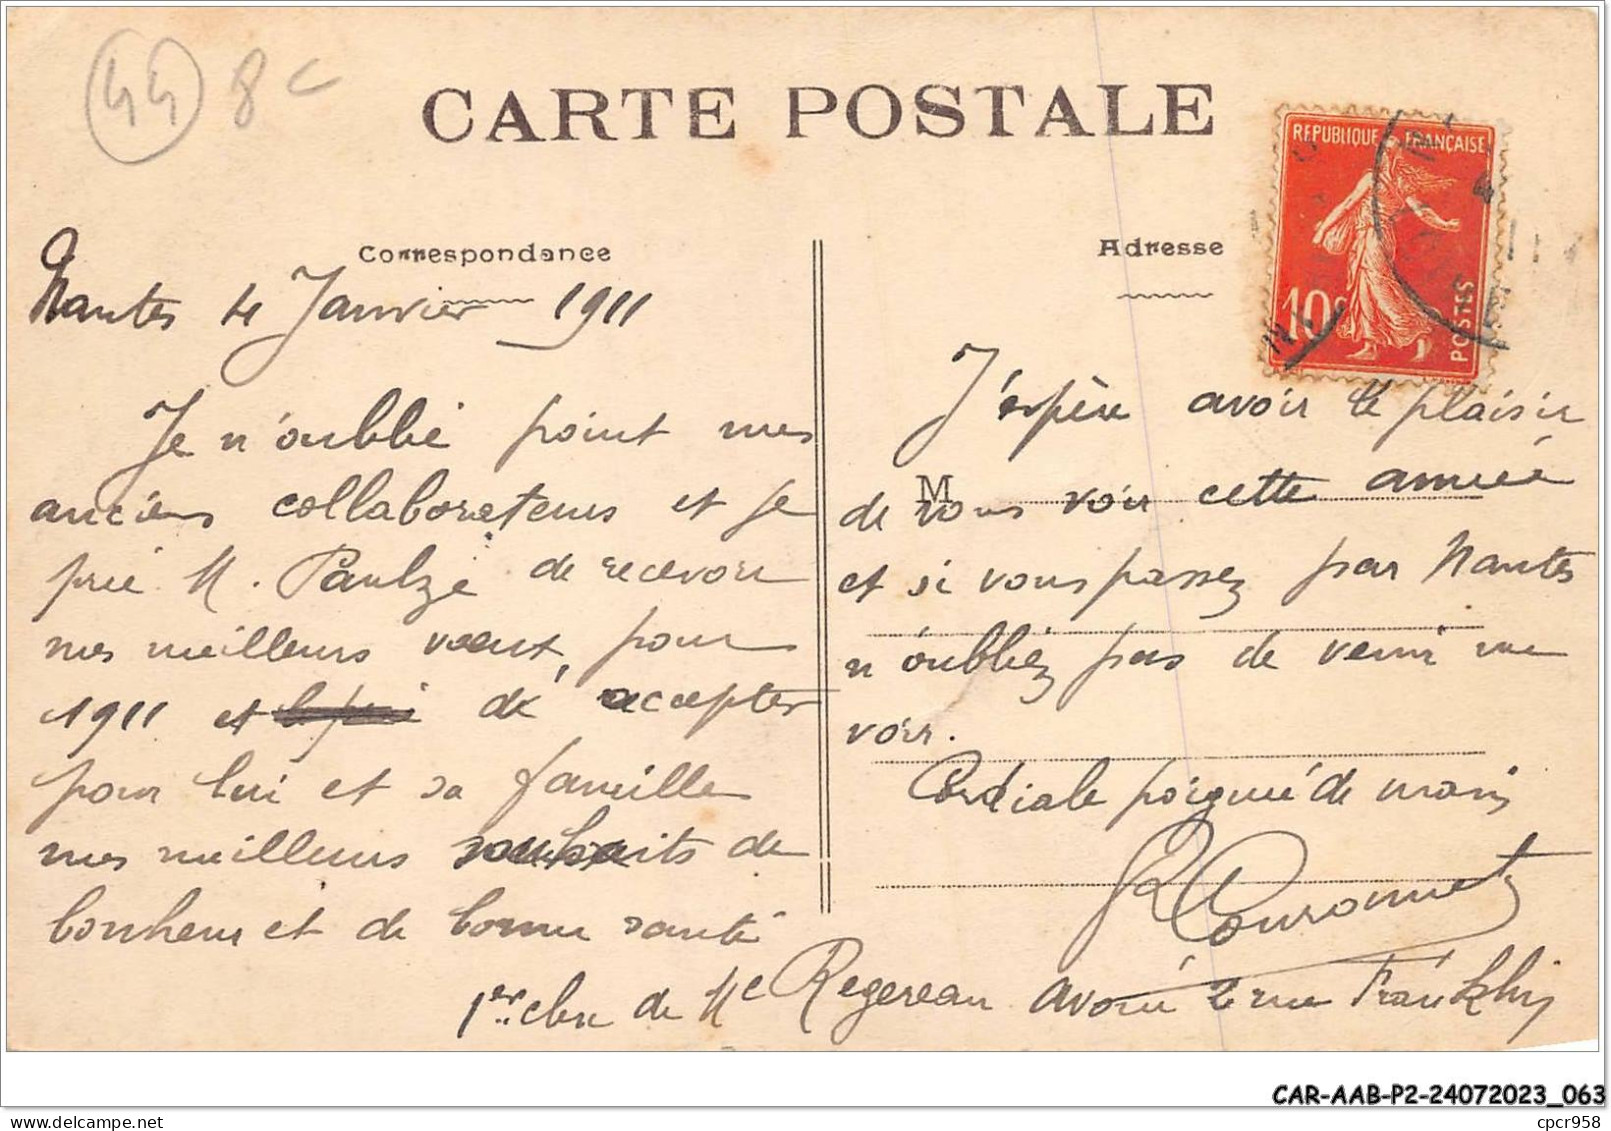 44 8c
CARTE POSTALE
REPUBLIQUE FRANÇAISE
10c
POSTES
Correspondance
Adresse
Nantes 4 Janvier 1911
Je n'oublie point mes
anciens collaborateurs et je
prie M. Paulze de recevoir
mes meilleurs voeux, pour
1911 et d'accepter
pour lui et sa famille
mes meilleurs souhaits de
bonheur et de bonne santé
J'espère avoir le plaisir
M
de vous voir cette année
et si vous passez par Nantes
n'oubliez pas de venir me
voir.
Cordiale poignée de mains
Couronnet
1er clerc de Me Regereau avoué 2 rue Franklin
CAR-AAB-P2-24072023_063
cpcr958